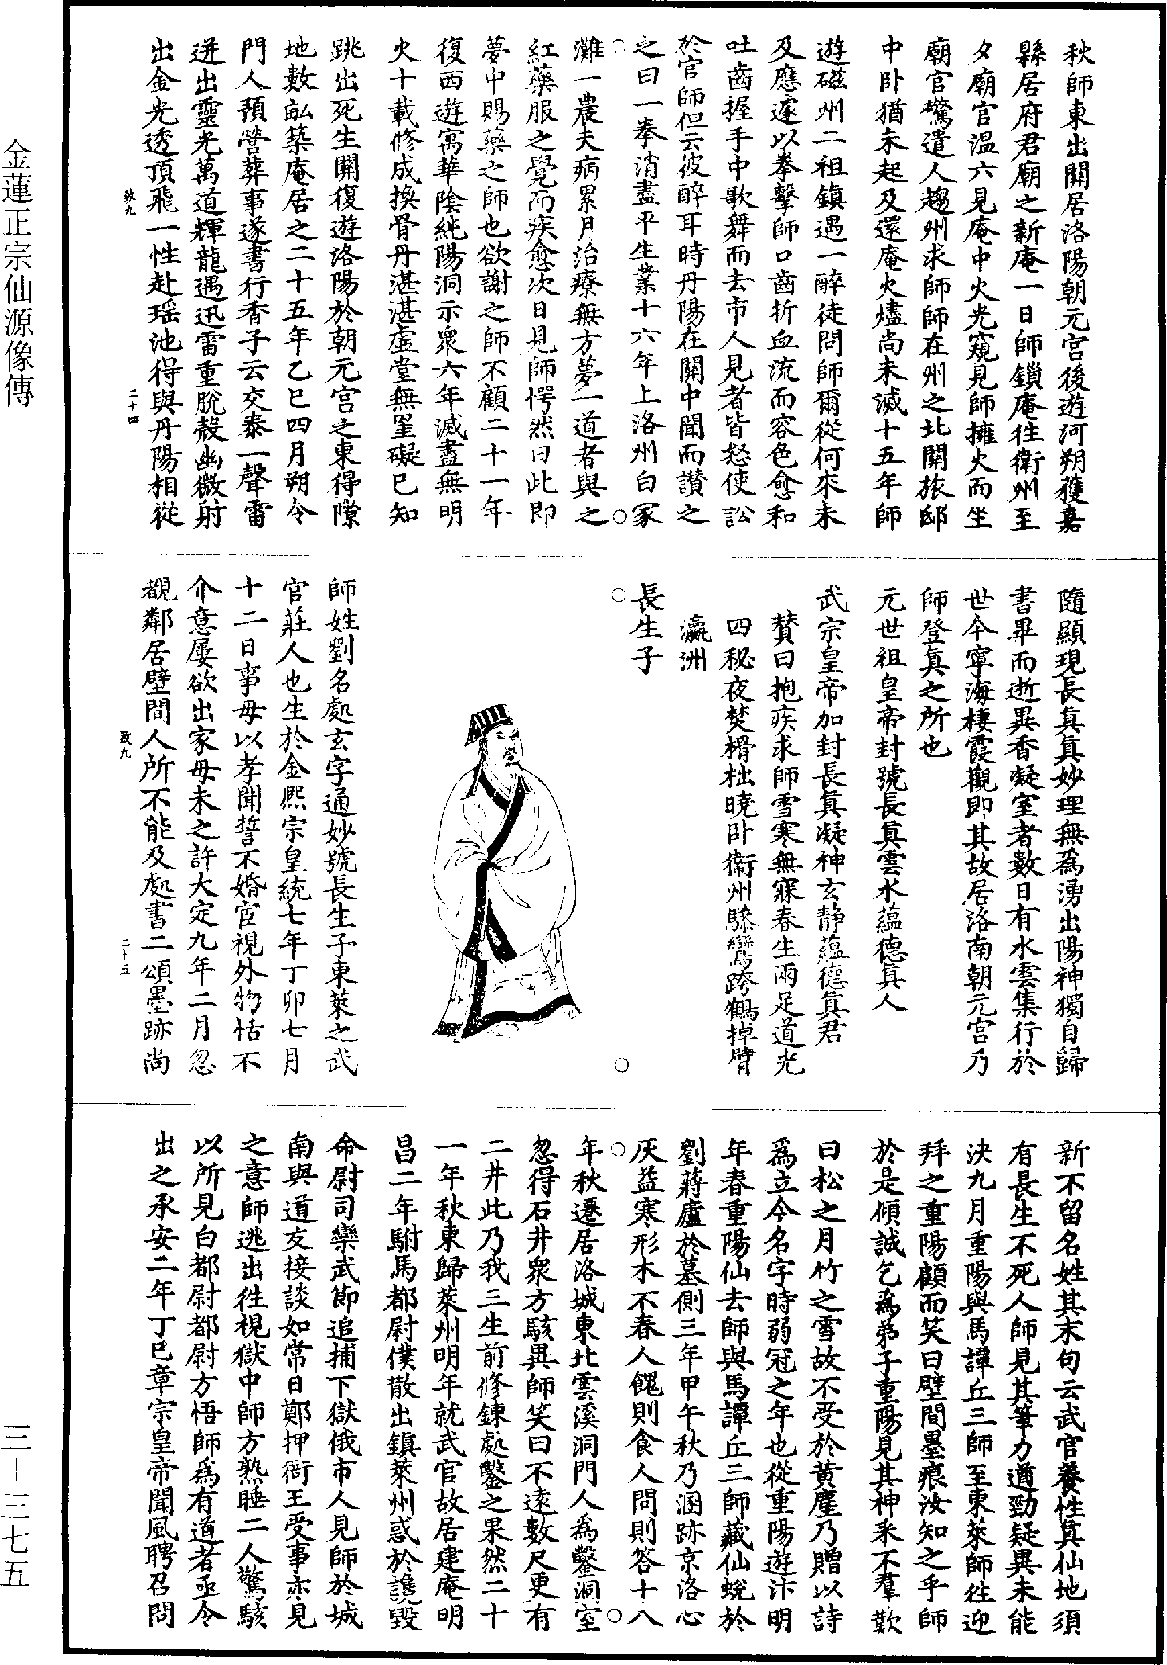 金蓮正宗仙源像傳
三－三七五
秋師東出關居洛陽朝元宮後遊河朔獲嘉
縣居府君廟之新庵一日師鎖庵往衛州至
夕廟官溫六見庵中火光窺見師擁火而坐
廟官驚遣人趨州求師師在州之北關旅邸
中卧猶未起及還庵火燼尚未滅十五年師
遊磁州二祖鎮遇一醉徒問師爾從何來未
及應遽以拳擊師口齒折血流而容色愈和
吐齒握手中歌舞而去市人見者皆怒使訟
於官師但云彼醉耳時丹陽在關中聞而讚之
之曰一拳消盡平生業十六年上洛州白家
灘一農夫病累月治療無方夢一道者與之
紅藥服之覺而疾愈次日見師愕然曰此即
夢中賜藥之師也欲謝之師不顧二十一年
復西遊寓華陰純陽洞示衆六年滅盡無明
火十載修成換骨丹湛湛虛堂無罣礙已知
跳出死生關復遊洛陽於朝元宮之東得隙
地數畝築庵居之二十五年乙巳四月朔令
門人預營葬事遂書行香子云交泰一聲雷
迸出靈光萬道輝龍遇迅雷重脫殼幽微射
出金光透頂飛一性赴瑶池得與丹陽相從
致九
二十四
隨顯現長真真妙理無為湧出陽神獨自歸
書畢而逝異香凝室者數日有水雲集行於
世今寧海棲霞觀即其故居洛南朝元宮乃
師登真之所也
元世祖皇帝封號長真雲水蘊德真人
武宗皇帝加封長真凝神玄靜蘊德真君
賛曰抱疾求師雪寒無寐春生兩足道光
四秘夜焚榾柮曉卧衛州驂鸞跨鶴掉臂
瀛洲
長生子
師姓劉名處玄字通妙號長生子東萊之武
官莊人也生於金熙宗皇統七年丁卯七月
十二日事母以孝聞誓不婚宦視外物恬不
介意屢欲出家母未之許大定九年二月忽
覩鄰居壁間人所不能及處書二頌墨跡尚
致九
二十五
新不留名姓其末句云武官養性真仙地須
有長生不死人師見其筆力遒勁疑異未能
決九月重陽與馬譚丘三師至東萊師徃迎
拜之重陽顧而笑曰壁間墨痕汝知之乎師
於是傾誠乞為弟子重陽見其神釆不羣歎
曰松之月竹之雪故不受於黃塵乃贈以詩
為立今名字時弱冠之年也從重陽遊汴明
年春重陽仙去師與馬譚丘三師藏仙蛻於
劉蔣廬於墓側三年甲午秋乃混跡京洛心
灰益寒形木不春人餽則食人問則答十八
年秋遷居洛城東北雲溪洞門人為鑿洞室
忽得石井衆方駭異師笑曰不遠數尺更有
二井此乃我三生前修鍊處鑿之果然二十
一年秋東歸萊州明年就武官故居建庵明
昌二年駙馬都尉僕散出鎮萊州惑於讒毀
命尉司欒武節追捕下獄俄市人見師於城
南與道友接談如常日鄭押衙王受事亦見
之意師逃出徃視獄中師方熟睡二人驚駭
以所見白都尉都尉方悟師為有道者亟令
出之承安二年丁巳章宗皇帝聞風聘召問